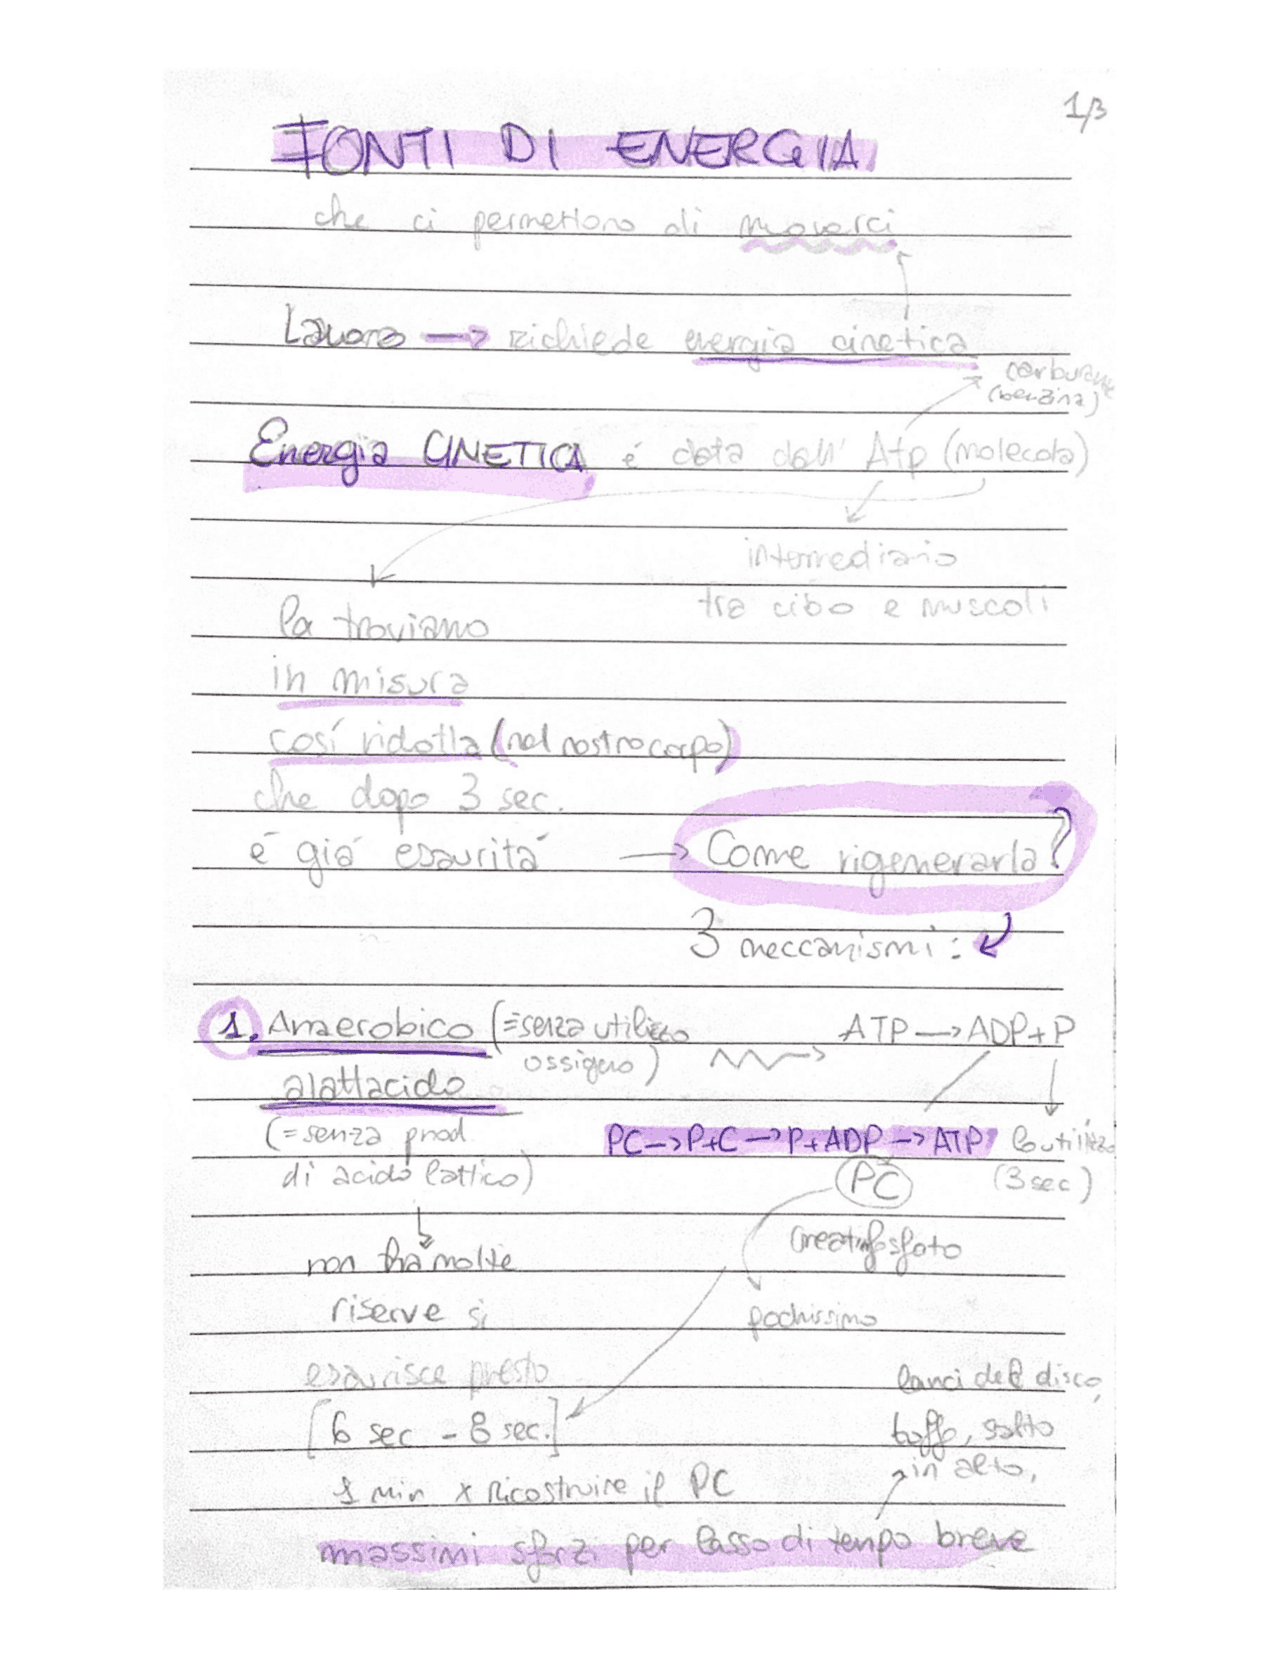 1/3
FONTI DI ENERGIA
che ci permettono di muoverci
Lavoro → richiede energia cinetica
carburante
(benzina)
Energia CINETICA é data dall' Atp (molecola)
intermediario
tra cibo e muscoli
la troviamo
in misura
così ridotta (nel nostro corpo)
che dopo 3 sec.
é giá esaurita → Come rigenerarla?
3 meccanismi:
1. Anaerobico (=senza utilizzo ATP → ADP+P
ossigeno)
alattacido
(=senza prod. PC → P+C → P+ADP → ATP lo utilizzo
di acido lattico) PC (3 sec)
non ha molte creatinfosfato
riserve si pochissimo
esaurisce presto lanci del disco,
[6 sec - 8 sec.] salto
in alto,
1 min x Ricostruire il PC
massimi sforzi per lasso di tempo breve